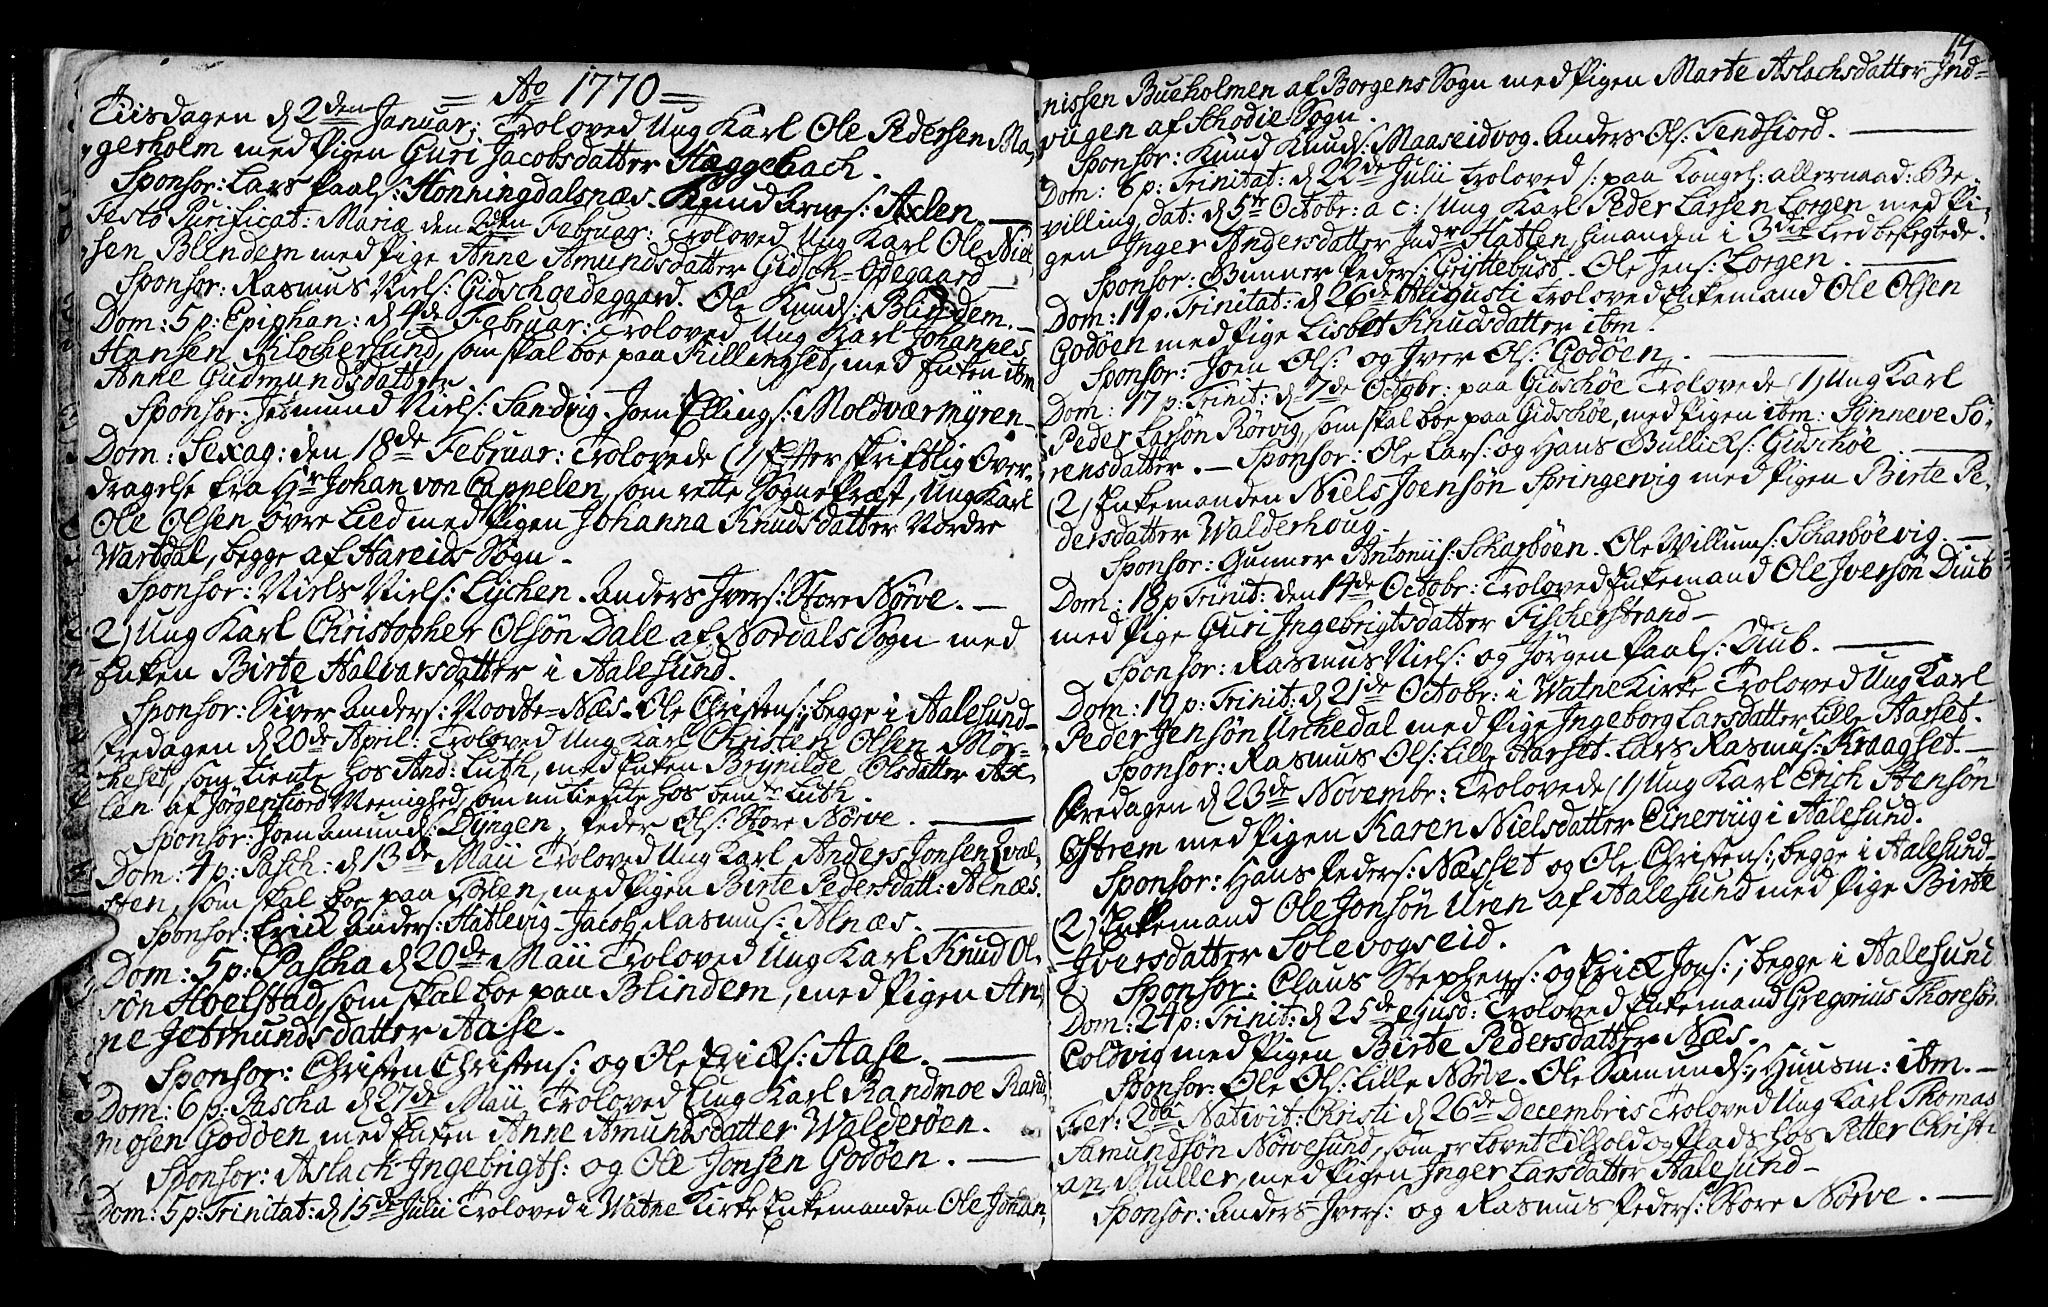 = Ao 1770 =
Tiisdagen d 2den Januar: Troloved Ung Karl Ole Pedersen Ma-
gerholm med Pigen Guri Jacobsdatter Hæggebach.
Sponsor: Lars Paals: Honningdalsnæs. Knud Arnes: Axlen.
Festo Purificat: Mariæ den 2den Februar: Troloved Ung Karl Ole Niel-
sen Blindem med Pige Anne Amundsdatter Gidsch=Ødegaard
Sponsor: Rasmus Niels: Gidschoedegaard. Ole Knuds: Blindem.
Dom: 5 p: Epiphan: d 4de Februar: Troloved Ung Karl Johannes
Hansen Kilochersund, som skal boe paa Killinghed, med Enken ibm
Anne Gudmundsdatter
Sponsor: Jetmund Niels: Sandvig. Joen Ellings: Moldværmyren.
Dom: Sexag: den 18de Februar: Trolovede (1) Efter skriftlig Over-
dragelse fra Hr Johan von Cappelen, som rette Sognepræst, Ung Karl
Ole Olsen Øvre Lied med Pigen Johanna Knudsdatter Nordre
Wartdal, begge af Hareids Sogn.
Sponsor: Niels Niels: Lychen. Anders Ivers: Store Nørve.
2) Ung Karl Christopher Olsøn Dale af Nordals Sogn med
Enken Birte Halvarsdatter i Aalesund.
Sponsor: Siver Anders: Noodte=Næs. Ole Christens: begge i Aalesund
Fredagen d 20de April: Troloved Ung Karl Christen Olsen Mør-
cheset, som tiente hos And: Luth, med Enken Brynilde Olsdatter Ax-
len af Jørgenfiord Meenighed, som nu tiente hos bemte Luth.
Sponsor: Joen Amunds: Dyngen, Peder Ols: Store Nørve.
Dom: 4 p: Pasch: d 13de Maii Troloved Ung Karl Anders Jonsen Qval-
sten, som skal boe paa Tolen, med Pigen Birte Pedersdatt: Alnæs.
Sponsor: Erick Anders: Hatlevig. Jacob Rasmus: Alnæs.
Dom: 5 p: Pascha d 20de Maii Troloved Ung Karl Knud Ol-
søn Hoelstad, som skal boe paa Blindem, med Pigen An-
ne Jetmundsdatter Aase.
Sponsor: Christen Christens: og Ole Ericks: Aase.
Dom: 6 p: Pascha d 27de Maii Troloved Ung Karl Randmoe Rand-
mosen Godøen med Enken Anne Amundsdatter Walderøen.
Sponsor: Aslach Ingebrigts: og Ole Jonsen Godøen.
Dom: 5 p: Trinitat: d 15de Julii Troloved i Watne Kirke Enkemanden Ole Johan-
nissen Bueholmen af Borgens Sogn med Pigen Marte Aslachsdatter Ind-
vügen af Schodie Sogn.
Sponsor: Knud Knuds: Maaseidvog. Anders Ols: Tendfiord.
Dom: 6 p: Trinitat: d 22de Julii Troloved /: paa Kongel: allernaad: Be-
villing, dat: d 5te Octobr: a c: / Ung Karl Peder Larsen Lorgen med Pi-
gen Inger Andersdatter Indr Hatlen, hinanden i 3die Leed beslegtede.
Sponsor: Gunner Peders: Gristtebust. Ole Jens: Lorgen.
Dom: 11 p. Trinitat: d 26de Augusti Troloved Enkemand Ole Olsen
Godøen med Pige Lisbet Knudsdatter ibm.
Sponsor: Joen Ols: og Iver Ols: Godøen.
Dom: 17 p: Trinit: d 7de Octobr: paa Gidschøe Trolovede (1) Ung Karl
Peder Larsøn Rørvig, som skal boe paa Gidschøe, med Pigen ibm: Synneve Sø-
rensdatter. — Sponsor: Ole Lars: og Hans Bullicks: Gidschøe
(2) Enkemanden Niels Joensøn Springervig med Pigen Birte Pe-
dersdatter Walderhoug.
Sponsor: Gunner Antoniis: Scharbøen. Ole Willums: Scharbøevig.
Dom: 18 p Trinit: den 14de Octobr: Troloved Enkemand Ole Iversøn Diub
med Pige Guri Ingebrigtsdatter Fischerstrand
Sponsor: Rasmus Niels: og Jørgen Paals: Diub.
Dom: 19 p: Trinit: d 21de Octobr: i Watne Kirke Troloved Ung Karl
Peder Jensøn Urchedal med Pige Ingeborg Larsdatter Lille Aarset.
Sponsor: Rasmus Ols: Lille Aarset. Lars Rasmus: Kraagset.
Fredagen d 23de Novembr: Trolovede (1) Ung Karl Erich Stensøn
Østrem med Pigen Karen Nielsdatter Einervüg i Aalesund.
Sponsor: Hans Peders: Næsset og Ole Christens:, begge i Aalesund.
(2) Enkemand Ole Jonsøn Uren af Aalesund med Pige Birte
Iversdatter Solevogseid.
Sponsor: Claus Stephens: og Erick Jons:, begge i Aalesund
Dom: 24 p: Trinit: d 25de ejusd: Troloved Enkemand Gregorius Thoresøn
Coldvig med Pigen Birte Pedersdatter Næs.
Sponsor: Ole Ols: Lille Nørve. Ole Samunds:, Huusm: ibm.
Fer: 2da Nativit: Christi d 26de Decembris Troloved Ung Karl Thomas
Samundsøn Nørvesund, som er Lovet Tilhold og Plads hos Petter Christi-
an Müller, med Pigen Inger Larsdatter Aalesund
Sponsor: Anders Ivers: og Rasmus Peders: Store Nørve.